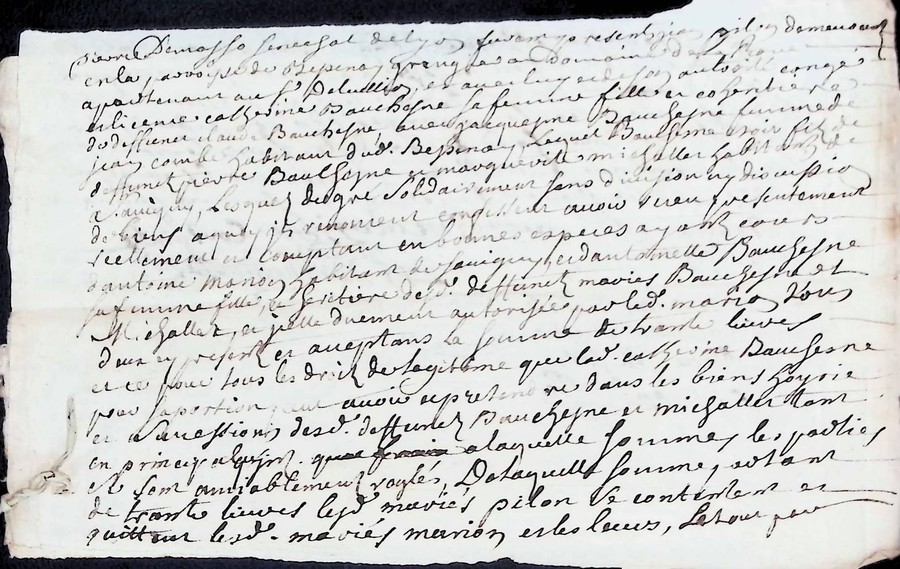 pierre Demasso senechal de lyon furent presents jean pilon demeurant
en la parroisse de Bessenay grangier au Domaine
apartenant au Sr. Deluillion, et avec luy et de son autorité congé
et licence catherine Bauchesne sa femme fille et cohéritiere
de deffunct claude Bauchesne, avec jacquesme Bauchesne femme de
jean combe habitant dud. Bessenay, lequel Bauchesne étoit fils de
deffunct pierre Bauchesne et marguerite michallet habitants de
Savigny, Lesquels de gré Solidairement sans division ny discussion
de biens a quoy ils renoncent confessent avoir receu presentement
reellement et comptant en bonnes especes ayant cours
d'antoine marion habitant de Savigny, et d'antoinette Bauchesne
sa femme fille, et heritiere desd. deffuncts mariés Bauchesne et
Michallet, et icelle duement autorisée par led. marion Tous
deux cy presents et acceptans La somme de trante livres
et ce pour tous les droits de legitime que lad. catherine Bauchesne
pour sa portion peut avoir et pretendre dans les biens hoyrie
et Successions desd. deffuncts Bauchesne et michallet tant
en principal a laquelle somme les parties
se sont amiablement réglés, De laquelle somme partant
de trante livres lesd. mariés pilon se contentent et
quittent lesd. mariés marion et les leurs, Le tout pour